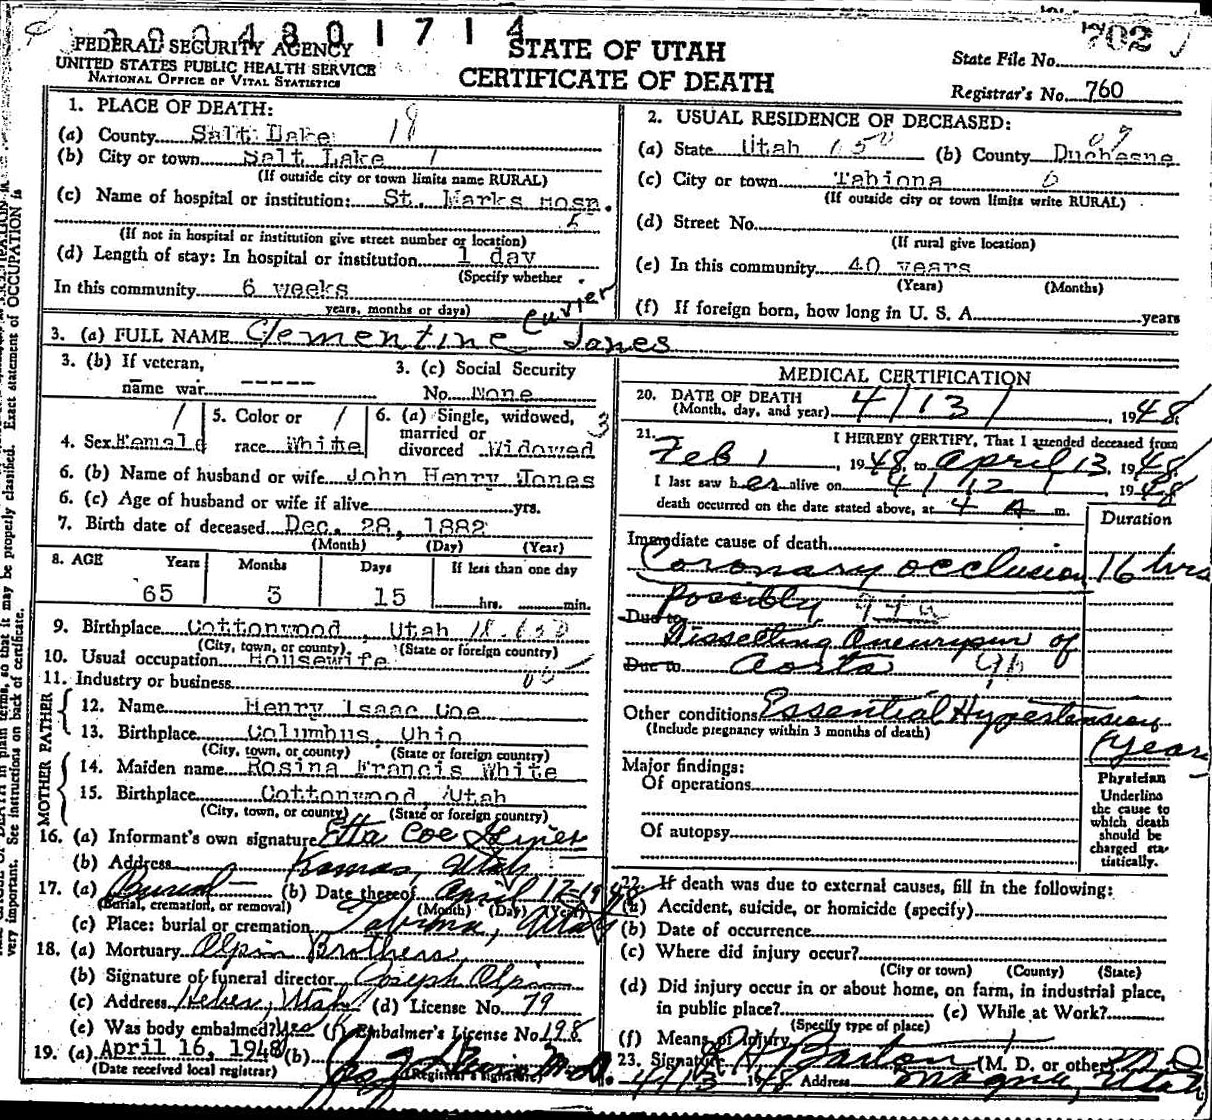 004801714
702
FEDERAL SECURITY AGENCY
UNITED STATES PUBLIC HEALTH SERVICE
NATIONAL OFFICE OF VITAL STATISTICS
STATE OF UTAH
CERTIFICATE OF DEATH
State File No.
Registrar's No. 760
1. PLACE OF DEATH:
(a) County Salt Lake 18
(b) City or town Salt Lake 1
(If outside city or town limits name RURAL)
(c) Name of hospital or institution: St. Marks Hosp.
5
(If not in hospital or institution give street number or location)
(d) Length of stay: In hospital or institution 1 day
(Specify whether
In this community 6 weeks
years, months or days)
2. USUAL RESIDENCE OF DECEASED:
(a) State Utah 150 (b) County Duchesne 07
(c) City or town Tabiona 0
(If outside city or town limits write RURAL)
(d) Street No.
(If rural give location)
(e) In this community 40 years
(Years) (Months)
(f) If foreign born, how long in U. S. A. years
3. (a) FULL NAME Clementine Jones
3. (b) If veteran,
name war -----
3. (c) Social Security
No. None
4. Sex Female 1
5. Color or 1
race White
6. (a) Single, widowed, 3
married or
divorced Widowed
6. (b) Name of husband or wife John Henry Jones
6. (c) Age of husband or wife if alive yrs.
7. Birth date of deceased Dec. 28, 1882
(Month) (Day) (Year)
8. AGE Years Months Days If less than one day
65 3 15 hrs. min.
9. Birthplace Cottonwood, Utah
(City, town, or county) (State or foreign country)
10. Usual occupation Housewife
11. Industry or business
FATHER
12. Name Henry Isaac Coe
13. Birthplace Columbus, Ohio
(City, town, or county) (State or foreign country)
MOTHER
14. Maiden name Rosina Francis White
15. Birthplace Cottonwood, Utah
(City, town, or county) (State or foreign country)
16. (a) Informant's own signature Etta Coe
(b) Address Kamas, Utah
17. (a) Burial (b) Date thereof April 17-1948
(Burial, cremation, or removal) (Month) (Day) (Year)
(c) Place: burial or cremation Tabiona, Utah
18. (a) Mortuary Olpin Brothers
(b) Signature of funeral director Joseph Olpin
(c) Address Heber, Utah (d) License No. 79
(e) Was body embalmed? Yes (f) Embalmer's License No. 198
19. (a) April 16, 1948 (b)
(Date received local registrar) (Registrar's signature)
MEDICAL CERTIFICATION
20. DATE OF DEATH
(Month, day, and year) 4/13/ 1948
21. I HEREBY CERTIFY, That I attended deceased from
Feb 1, 1948, to April 13, 1948
I last saw her alive on 4/12/, 1948
death occurred on the date stated above, at 4 A m.
Duration
Immediate cause of death
Coronary occlusion 16 hrs
possibly 94a
Due to
Dissecting Aneurysm of
Due to Aorta 96
Other conditions Essential Hypertension
(Include pregnancy within 3 months of death)
years
Major findings:
Of operations
Of autopsy
Physician
Underline
the cause to
which death
should be
charged sta-
tistically.
22. If death was due to external causes, fill in the following:
(a) Accident, suicide, or homicide (specify)
(b) Date of occurrence
(c) Where did injury occur?
(City or town) (County) (State)
(d) Did injury occur in or about home, on farm, in industrial place,
in public place? (e) While at Work?
(Specify type of place)
(f) Means of Injury
23. Signature Barton (M. D. or other) M D
4/13 1948 Address Magna, Utah
very important. See instructions on back of certificate.
in plain terms, so that it may be properly classified. Exact statement of OCCUPATION is